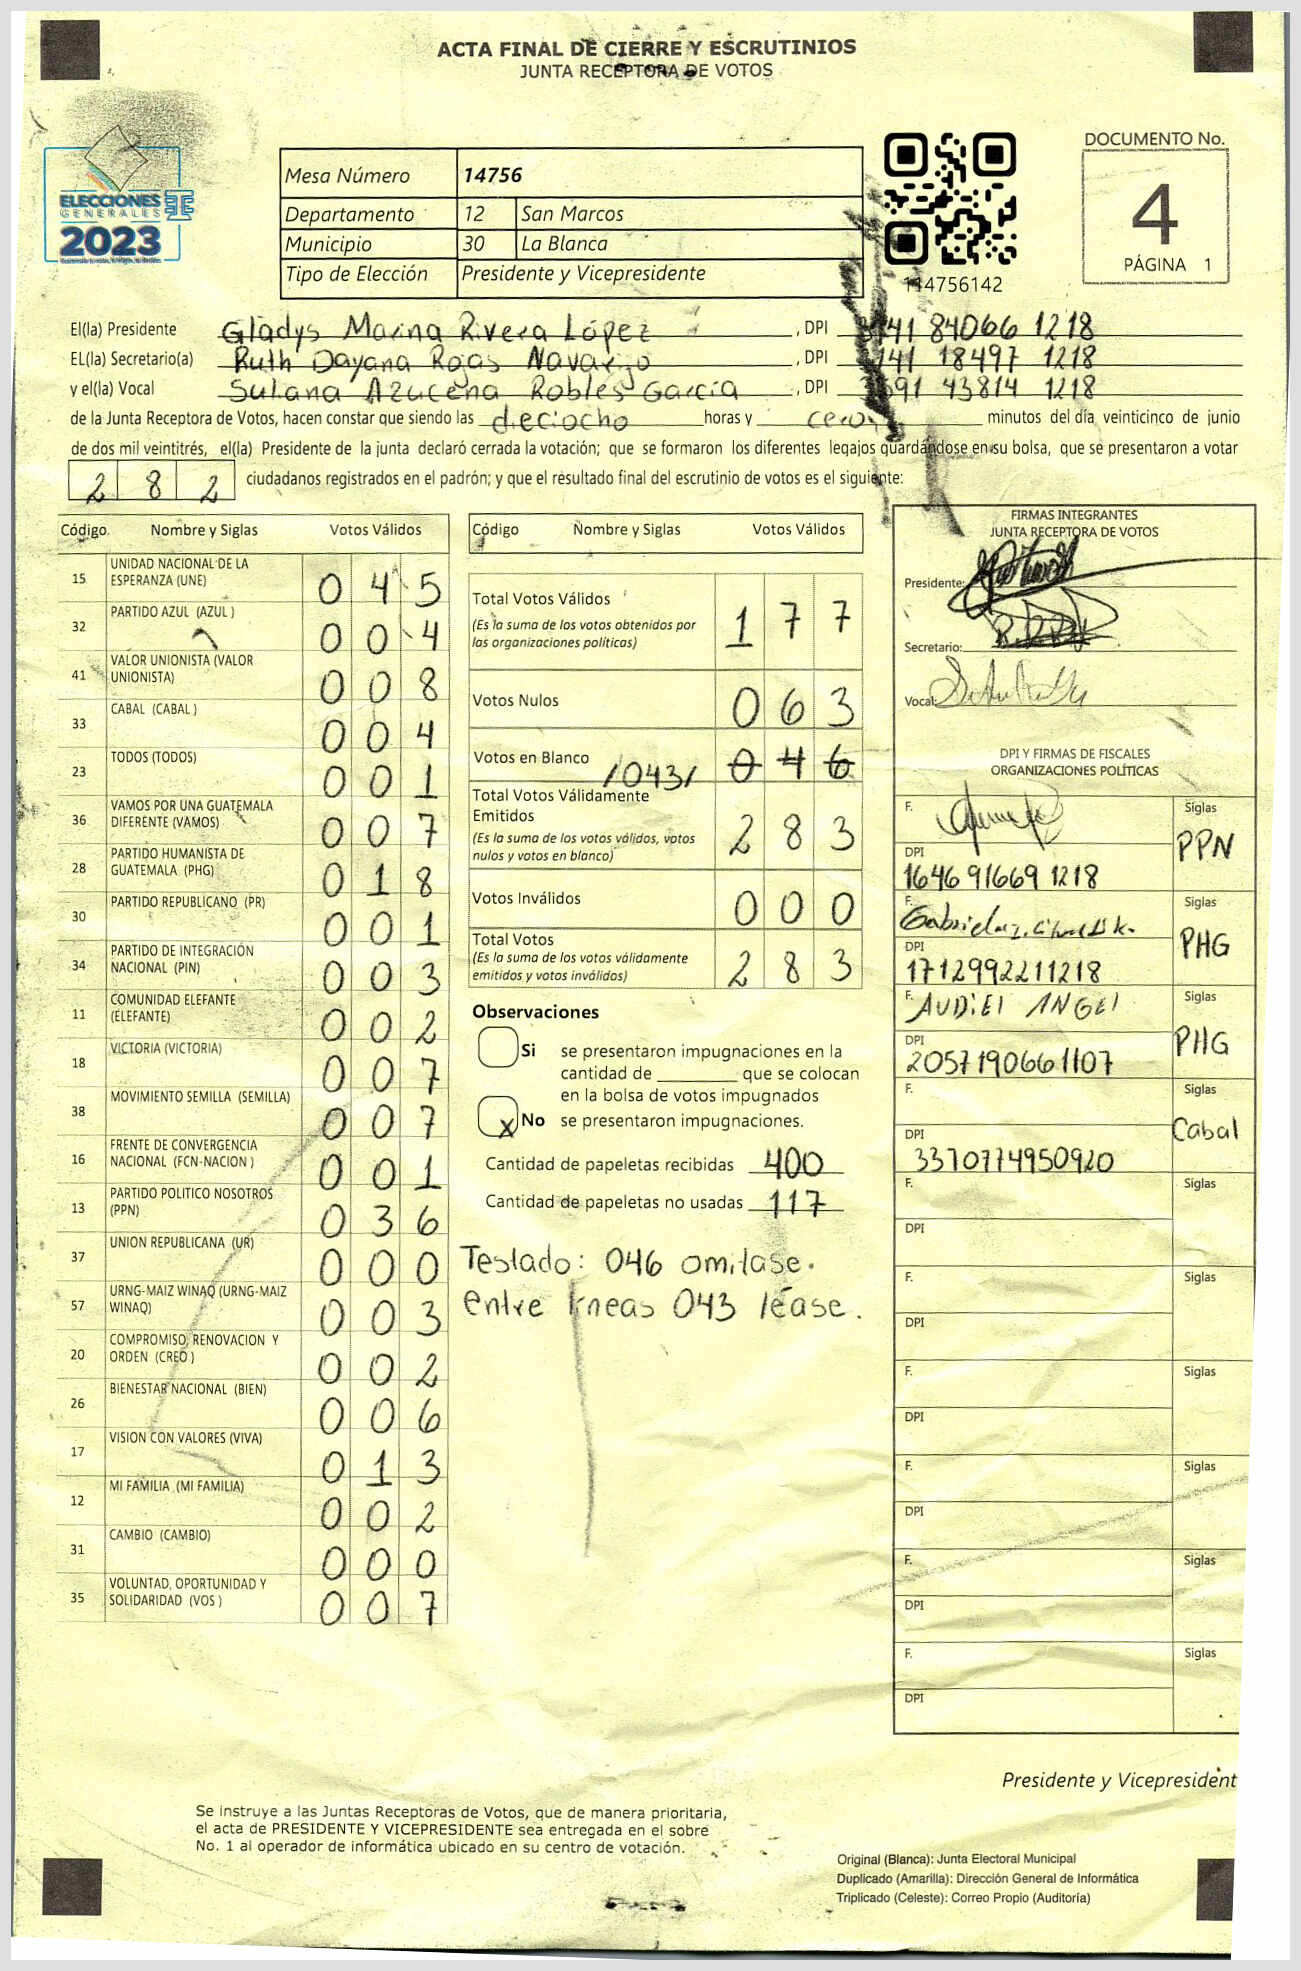 ACTA FINAL DE CIERRE Y ESCRUTINIOS
JUNTA RECEPTORA DE VOTOS
ELECCIONES
GENERALES
2023
Mesa Número 14756
Departamento 12 San Marcos
Municipio 30 La Blanca
Tipo de Elección Presidente y Vicepresidente
114756142
DOCUMENTO No.
4
PÁGINA 1
El(la) Presidente Gladys Marina Rivera López , DPI 84066 1218
EL(la) Secretario(a) Ruth Dayana Rojas Navarijo , DPI 18497 1218
y el(la) Vocal Sulana Azucena Robles García , DPI 43814 1218
de la Junta Receptora de Votos, hacen constar que siendo las dieciocho horas y cero minutos del día veinticinco de junio
de dos mil veintitrés, el(la) Presidente de la junta declaró cerrada la votación; que se formaron los diferentes legajos quardándose en su bolsa, que se presentaron a votar
2 8 2 ciudadanos registrados en el padrón; y que el resultado final del escrutinio de votos es el siguiente:
Código Nombre y Siglas Votos Válidos
15 UNIDAD NACIONAL DE LA ESPERANZA (UNE) 0 4 5
32 PARTIDO AZUL (AZUL ) 0 0 4
41 VALOR UNIONISTA (VALOR UNIONISTA) 0 0 8
33 CABAL (CABAL ) 0 0 4
23 TODOS (TODOS) 0 0 1
36 VAMOS POR UNA GUATEMALA DIFERENTE (VAMOS) 0 0 7
28 PARTIDO HUMANISTA DE GUATEMALA (PHG) 0 1 8
30 PARTIDO REPUBLICANO (PR) 0 0 1
34 PARTIDO DE INTEGRACIÓN NACIONAL (PIN) 0 0 3
11 COMUNIDAD ELEFANTE (ELEFANTE) 0 0 2
18 VICTORIA (VICTORIA) 0 0 7
38 MOVIMIENTO SEMILLA (SEMILLA) 0 0 7
16 FRENTE DE CONVERGENCIA NACIONAL (FCN-NACION ) 0 0 1
13 PARTIDO POLITICO NOSOTROS (PPN) 0 3 6
37 UNION REPUBLICANA (UR) 0 0 0
57 URNG-MAIZ WINAQ (URNG-MAIZ WINAQ) 0 0 3
20 COMPROMISO, RENOVACION Y ORDEN (CREO ) 0 0 2
26 BIENESTAR NACIONAL (BIEN) 0 0 6
17 VISION CON VALORES (VIVA) 0 1 3
12 MI FAMILIA (MI FAMILIA) 0 0 2
31 CAMBIO (CAMBIO) 0 0 0
35 VOLUNTAD, OPORTUNIDAD Y SOLIDARIDAD (VOS ) 0 0 7
Código Nombre y Siglas Votos Válidos
Total Votos Válidos 1 7 7
(Es la suma de los votos obtenidos por
las organizaciones políticas)
Votos Nulos 0 6 3
Votos en Blanco /043/ 0 4 6
Total Votos Válidamente
Emitidos 2 8 3
(Es la suma de los votos válidos, votos
nulos y votos en blanco)
Votos Inválidos 0 0 0
Total Votos 2 8 3
(Es la suma de los votos válidamente
emitidos y votos inválidos)
Observaciones
Si se presentaron impugnaciones en la
cantidad de ________ que se colocan
en la bolsa de votos impugnados
x No se presentaron impugnaciones.
Cantidad de papeletas recibidas 400
Cantidad de papeletas no usadas 117
Testado: 046 omitase.
entre líneas 043 léase.
FIRMAS INTEGRANTES
JUNTA RECEPTORA DE VOTOS
Presidente:
Secretario:
Vocal:
DPI Y FIRMAS DE FISCALES
ORGANIZACIONES POLÍTICAS
F. Siglas
PPN
DPI
1646 91669 1218
F. Siglas
PHG
DPI
1712992211218
F. AUDIEL ANGEL Siglas
PHG
DPI
2057190661107
F. Siglas
Cabal
DPI
3370774950920
F. Siglas
DPI
F. Siglas
DPI
F. Siglas
DPI
F. Siglas
DPI
F. Siglas
DPI
F. Siglas
DPI
Presidente y Vicepresident
Se instruye a las Juntas Receptoras de Votos, que de manera prioritaria,
el acta de PRESIDENTE Y VICEPRESIDENTE sea entregada en el sobre
No. 1 al operador de informática ubicado en su centro de votación.
Original (Blanca): Junta Electoral Municipal
Duplicado (Amarilla): Dirección General de Informática
Triplicado (Celeste): Correo Propio (Auditoría)